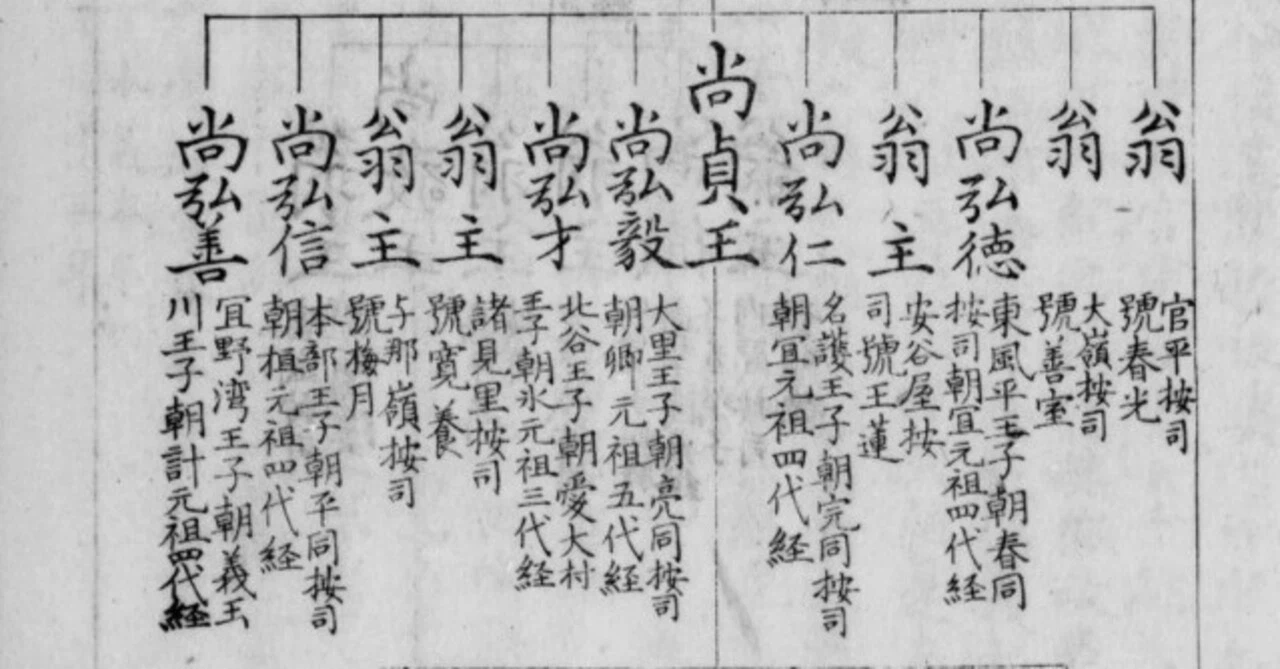 翁
官平按司
號春光
翁
大嶺按司
號善室
尚弘德
東風平王子朝春同
按司朝宜元祖四代経
翁主
安谷屋按
司號王蓮
尚弘仁
名護王子朝完同按司
朝冝元祖四代経
尚貞王
尚弘毅
大里王子朝亮同按司
朝卿元祖五代経
尚弘才
北谷王子朝愛大村
王子朝氷元祖三代経
翁主
諸見里按司
號寛養
翁主
与那嶺按司
號梅月
尚弘信
本部王子朝平同按司
朝植元祖四代経
尚弘善
冝野湾王子朝義玉
川王子朝計元祖四代経